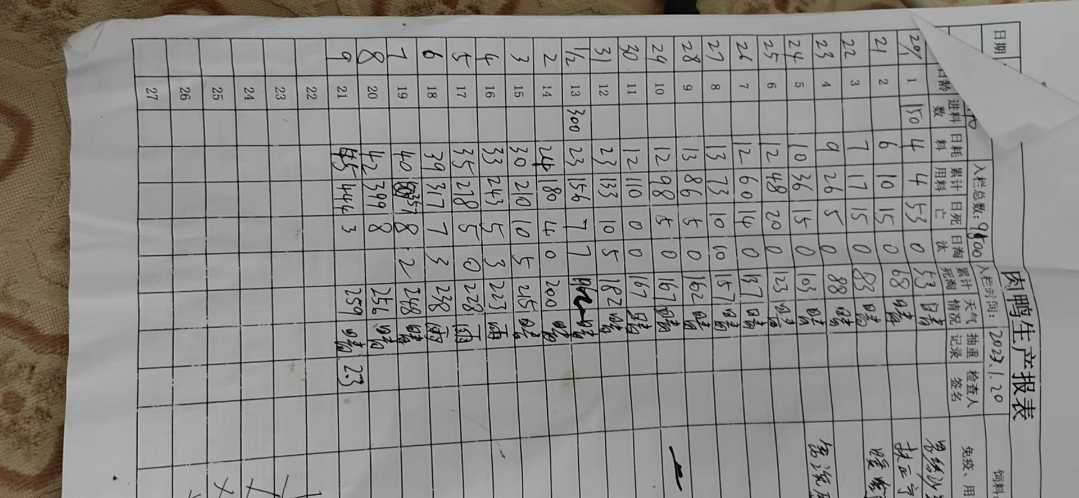 肉鸭生产报表
入栏总数: 入栏时间: 2023.1.20 饲料
日期 日龄 进料数 日耗料 累计用料 日死亡 日淘汰 累计死淘 天气情况 抽重记录 检查人签名 免疫、用
20/1 1 150 4 4 53 0 53 晴
21 2 6 10 15 0 68 晴
22 3 7 17 15 0 83 晴
23 4 9 26 5 0 88 晴
24 5 10 36 15 0 103 晴
25 6 12 48 20 0 123 晴
26 7 12 60 14 0 137 晴
27 8 13 73 10 10 157 晴
28 9 13 86 5 0 162 晴
29 10 12 98 5 0 167 晴
30 11 12 110 0 0 167 晴
31 12 23 133 10 5 182 晴
1/2 13 300 23 156 7 7 晴
2 14 24 180 4 0 200 晴
3 15 30 210 10 5 215 晴
4 16 33 243 5 3 223 雨
5 17 35 278 5 0 228 雨
6 18 39 317 7 3 238 雨
7 19 40 357 8 2 248 晴
8 20 42 399 8 256 晴
9 21 45 444 3 259 晴 23
22
23
24
25
26
27